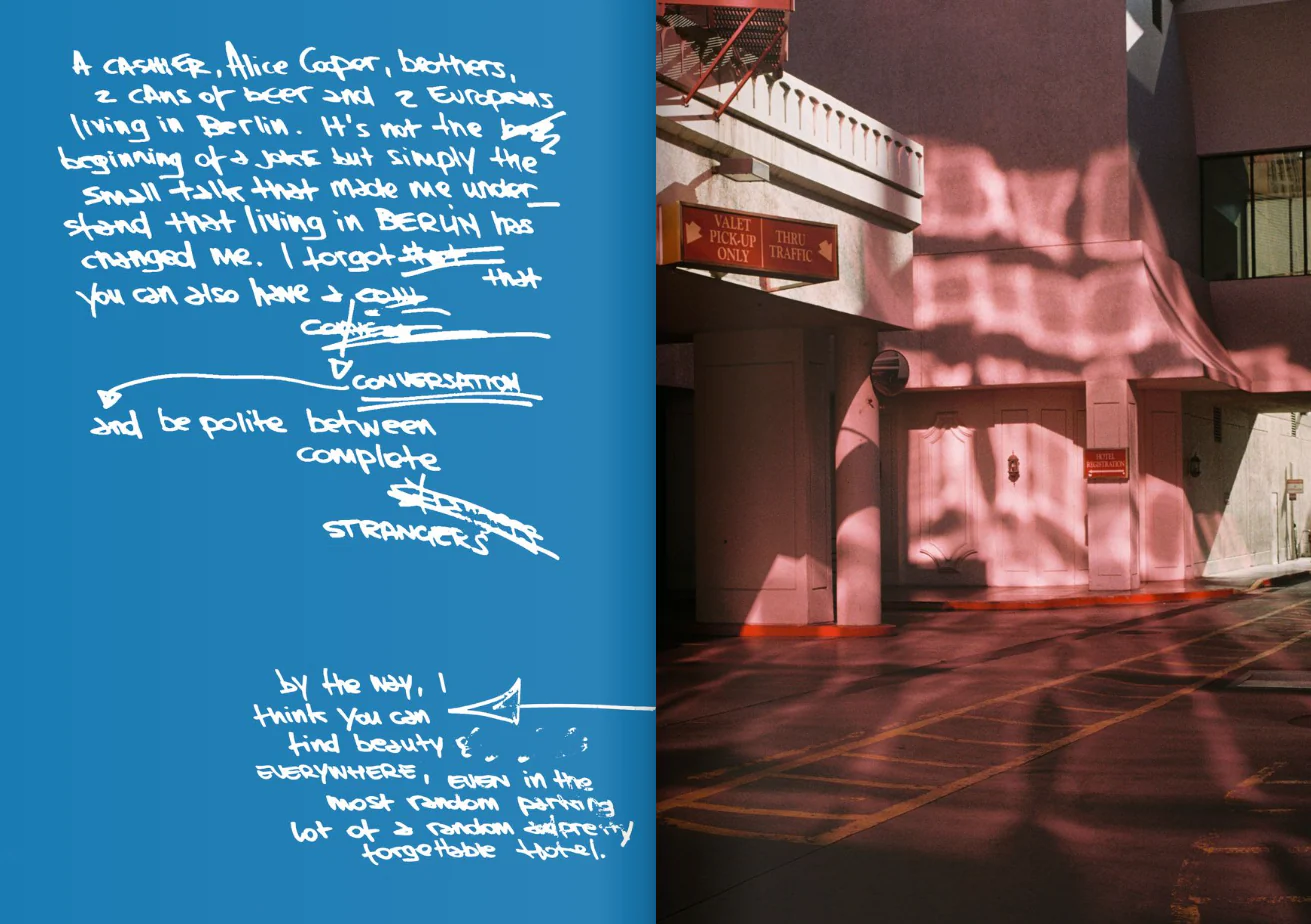 A CASHIER, Alice Cooper, brothers,
2 cans of beer and 2 Europeans
living in Berlin. It's not the
beginning of a joke but simply the
small talk that made me under_
stand that living in BERLIN has
changed me. I forgot
that
you can also have a
CONVERSATION
and be polite between
complete
STRANGERS
by the way, I
think you can
find beauty
EVERYWHERE, EVEN in the
most random parking
lot of a random and pretty
forgettable Hotel.
VALET
PICK-UP
ONLY
THRU
TRAFFIC
HOTEL
REGISTRATION